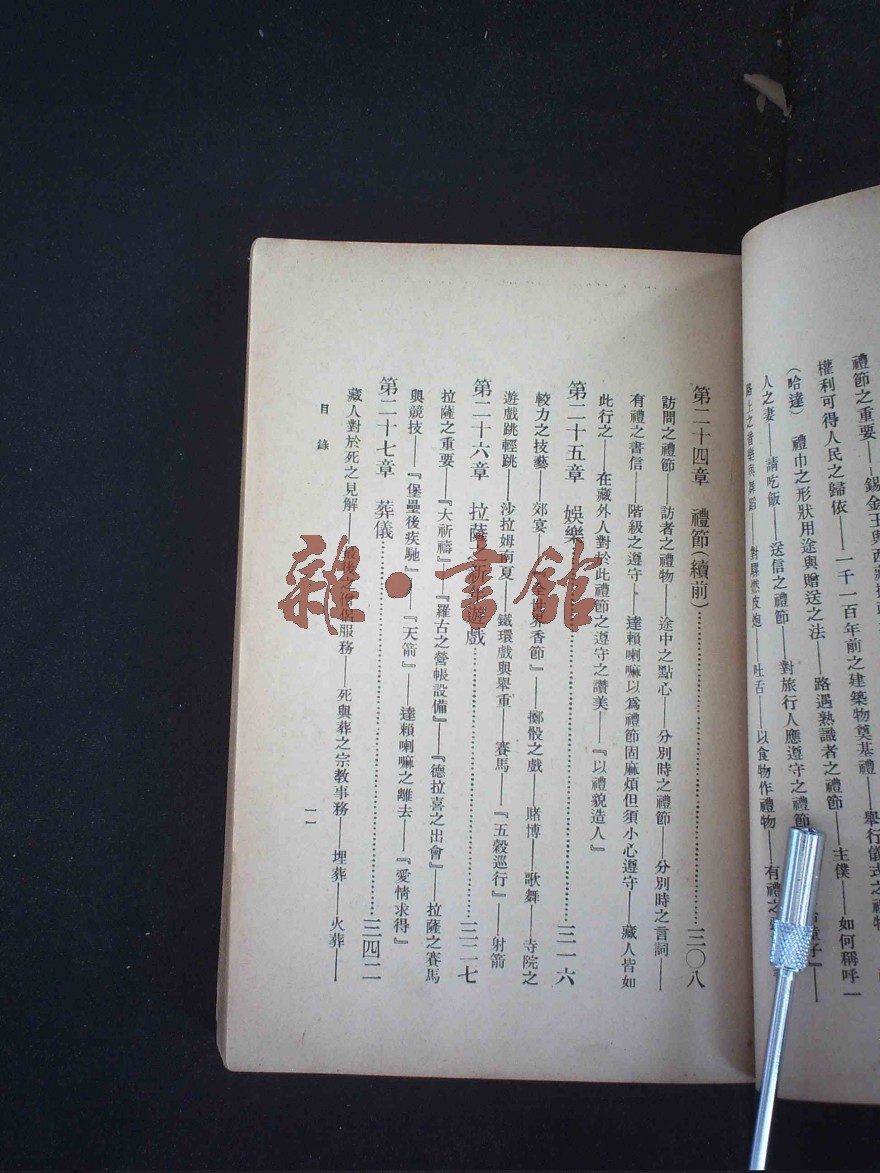 禮節之重要——錫金王與西藏
權利可得人民之歸依——一千一百年前之建築物奠基禮——舉行儀式之禮物
（哈達） 禮巾之形狀用途與贈送之法——路遇熟識者之禮節——主僕——如何稱呼一
人之妻——請吃飯——送信之禮節——對旅行人應遵守之禮節
路上之音樂與舞蹈——對騾燃皮炮——吐舌——以食物作禮物——有禮之
第二十四章 禮節（續前）…………三〇八
訪問之禮節——訪者之禮物——途中之點心——分別時之禮節——分別時之言詞——
有禮之書信——階級之遵守——達賴喇嘛以爲禮節固麻煩但須小心遵守——藏人皆如
此行之——在藏外人對於此禮節之遵守之讚美——『以禮貌造人』
第二十五章 娛樂…………三一六
較力之技藝——郊宴——『全世界香節』——擲骰之戲——賭博——歌舞——寺院之
遊戲跳輕跳——沙拉姆南夏——鐵環戲與舉重——賽馬——『五穀巡行』——射箭
第二十六章 拉薩之新年遊戲…………三二七
拉薩之重要——『大祈禱』——『羅古之營帳設備』——『德拉喜之出會』——拉薩之賽馬
與競技——『堡壘後疾馳』——『天箭』——達賴喇嘛之離去——『愛情求得』
第二十七章 葬儀…………三四二
藏人對於死之見解——最後之僧侶服務——死與葬之宗教事務——埋葬——火葬——
目錄
一一
雜·書館